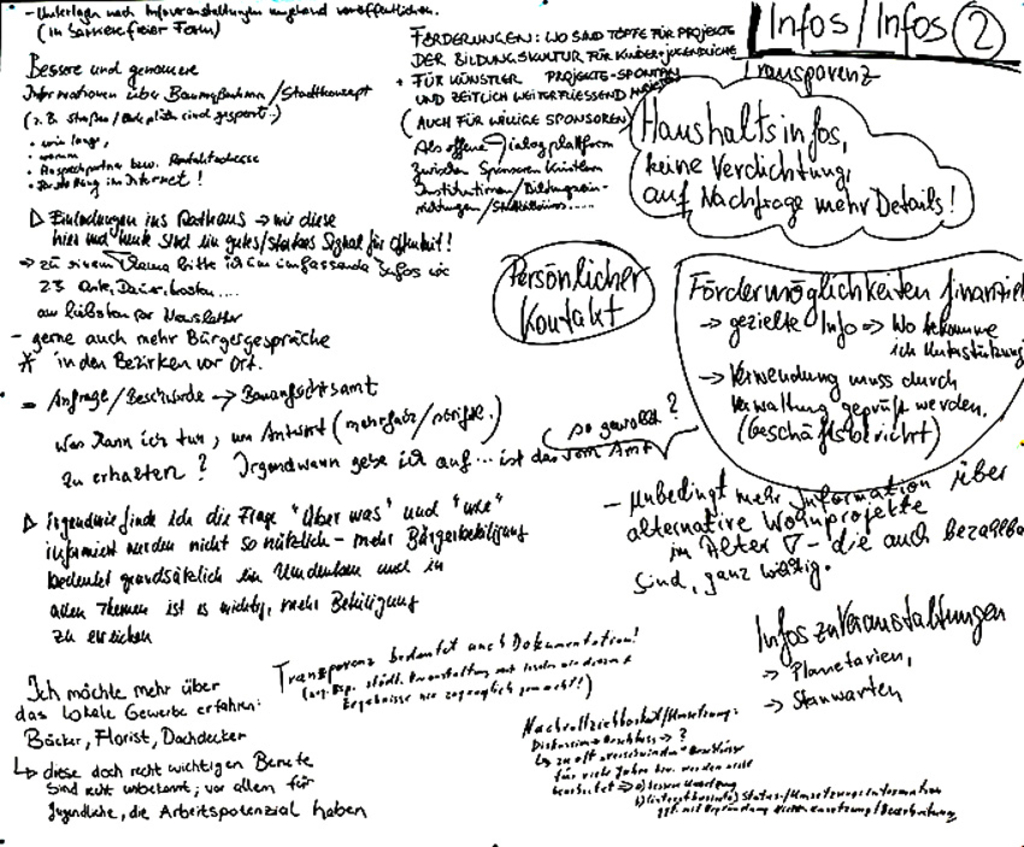 Infos/Infos 2
Transparenz
- Unterlagen nach Infoveranstaltungen umgehend veröffentlichen.
(in barrierefreier Form)
Bessere und genauere
Informationen über Baumaßnahmen/Stadtkonzept
(z.B. Straßen/Parkplätze sind gesperrt..)
• wie lange,
• warum
• Ansprechpartner bzw. Kontaktadresse
• Darstellung im Internet!
▷ Einladungen ins Rathaus → wie diese
hier und heute sind ein gutes/starkes Signal für Offenheit!
→ zu einem Thema bitte ich um umfassende Infos wie
z.B. Orte, Dauer, Kosten....
am liebsten per Newsletter
- gerne auch mehr Bürgergespräche
* in den Bezirken vor Ort.
- Anfrage/Beschwerde → Bauaufsichtsamt
Was kann ich tun, um Antwort (mehrfach/schriftl.)
zu erhalten? Irgendwann gebe ich auf... ist das vom Amt
so gewollt?
▷ irgendwie finde ich die Frage "über was" und "wie"
informiert werden nicht so nützlich - mehr Bürgerbeteiligung
bedeutet grundsätzlich ein Umdenken und in
allen Themen ist es wichtig, mehr Beteiligung
zu erreichen
Ich möchte mehr über
das lokale Gewerbe erfahren:
Bäcker, Florist, Dachdecker
↳ diese doch recht wichtigen Berufe
sind recht unbekannt; vor allem für
Jugendliche, die Arbeitspotenzial haben
FÖRDERUNGEN: WO SIND TÖPFE FÜR PROJEKTE
DER BILDUNGSKULTUR FÜR KINDER + JUGENDLICHE
+ FÜR KÜNSTLER PROJEKTE - SPONTAN
UND ZEITLICH WEITERFLIESSEND
(AUCH FÜR WILLIGE SPONSOREN)
Als offene Dialogplattform
zwischen Sponsoren Künstlern
Institutionen/Bildungsein-
richtungen/Stadtbüros.....
Haushaltsinfos,
keine Verdichtung,
auf Nachfrage mehr Details!
Persönlicher
Kontakt
Fördermöglichkeiten finanziel
→ gezielte Info => Wo bekomme
ich Unterstützung
→ Verwendung muss durch
Verwaltung geprüft werden.
(Geschäftsbericht)
- Unbedingt mehr Information über
alternative Wohnprojekte
im Alter ▽ - die auch bezahlba
sind, ganz wichtig.
Infos zu Veranstaltungen
→ Planetarien,
→ Stanwarten
Transparenz bedeutet auch Dokumentation!
(neg. Bsp. städt. Veranstaltung mit Inseln wie diesem &
Ergebnisse nie zugänglich gemacht!)
Nachvollziehbarkeit/Umsetzung:
Diskussion → Beschluss → ?
↳ zu oft "verschwinden" Beschlüsse
für viele Jahre bzw. werden nicht
bearbeitet → a) bessere Umsetzung
b) Status-/Umsetzungsinformation
ggf. mit Begründung Nicht-Umsetzung/Bearbeitung